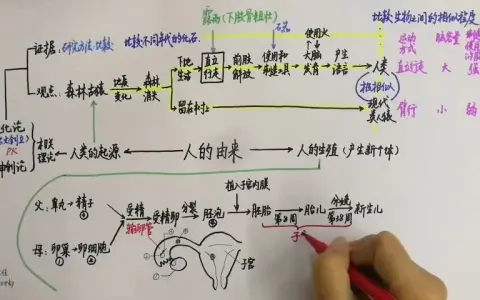 露西(下肢骨粗壮)
比较生物之间的相似程度
证据:研究方法:比较 比较不同年代的化石
石器
使用火
运动方式 脑容量
下地生活 直立行走 前肢解放 使用和制造工具 大脑发育 产生语言 人类
直立行走 大 强
观点:森林古猿 地质变化 森林消失
极相似
留在树上
现代类人猿
臂行 小 弱
化论
PK
神创论
相关理论
人类的起源 人的由来 人的生殖(产生新个体)
植入子宫内膜
父:睾丸 精子
受精 受精卵 分裂 胚泡 胚胎 第8周 胎儿 分娩 第38周 新生儿
输卵管
母:卵巢 卵细胞
子宫
子